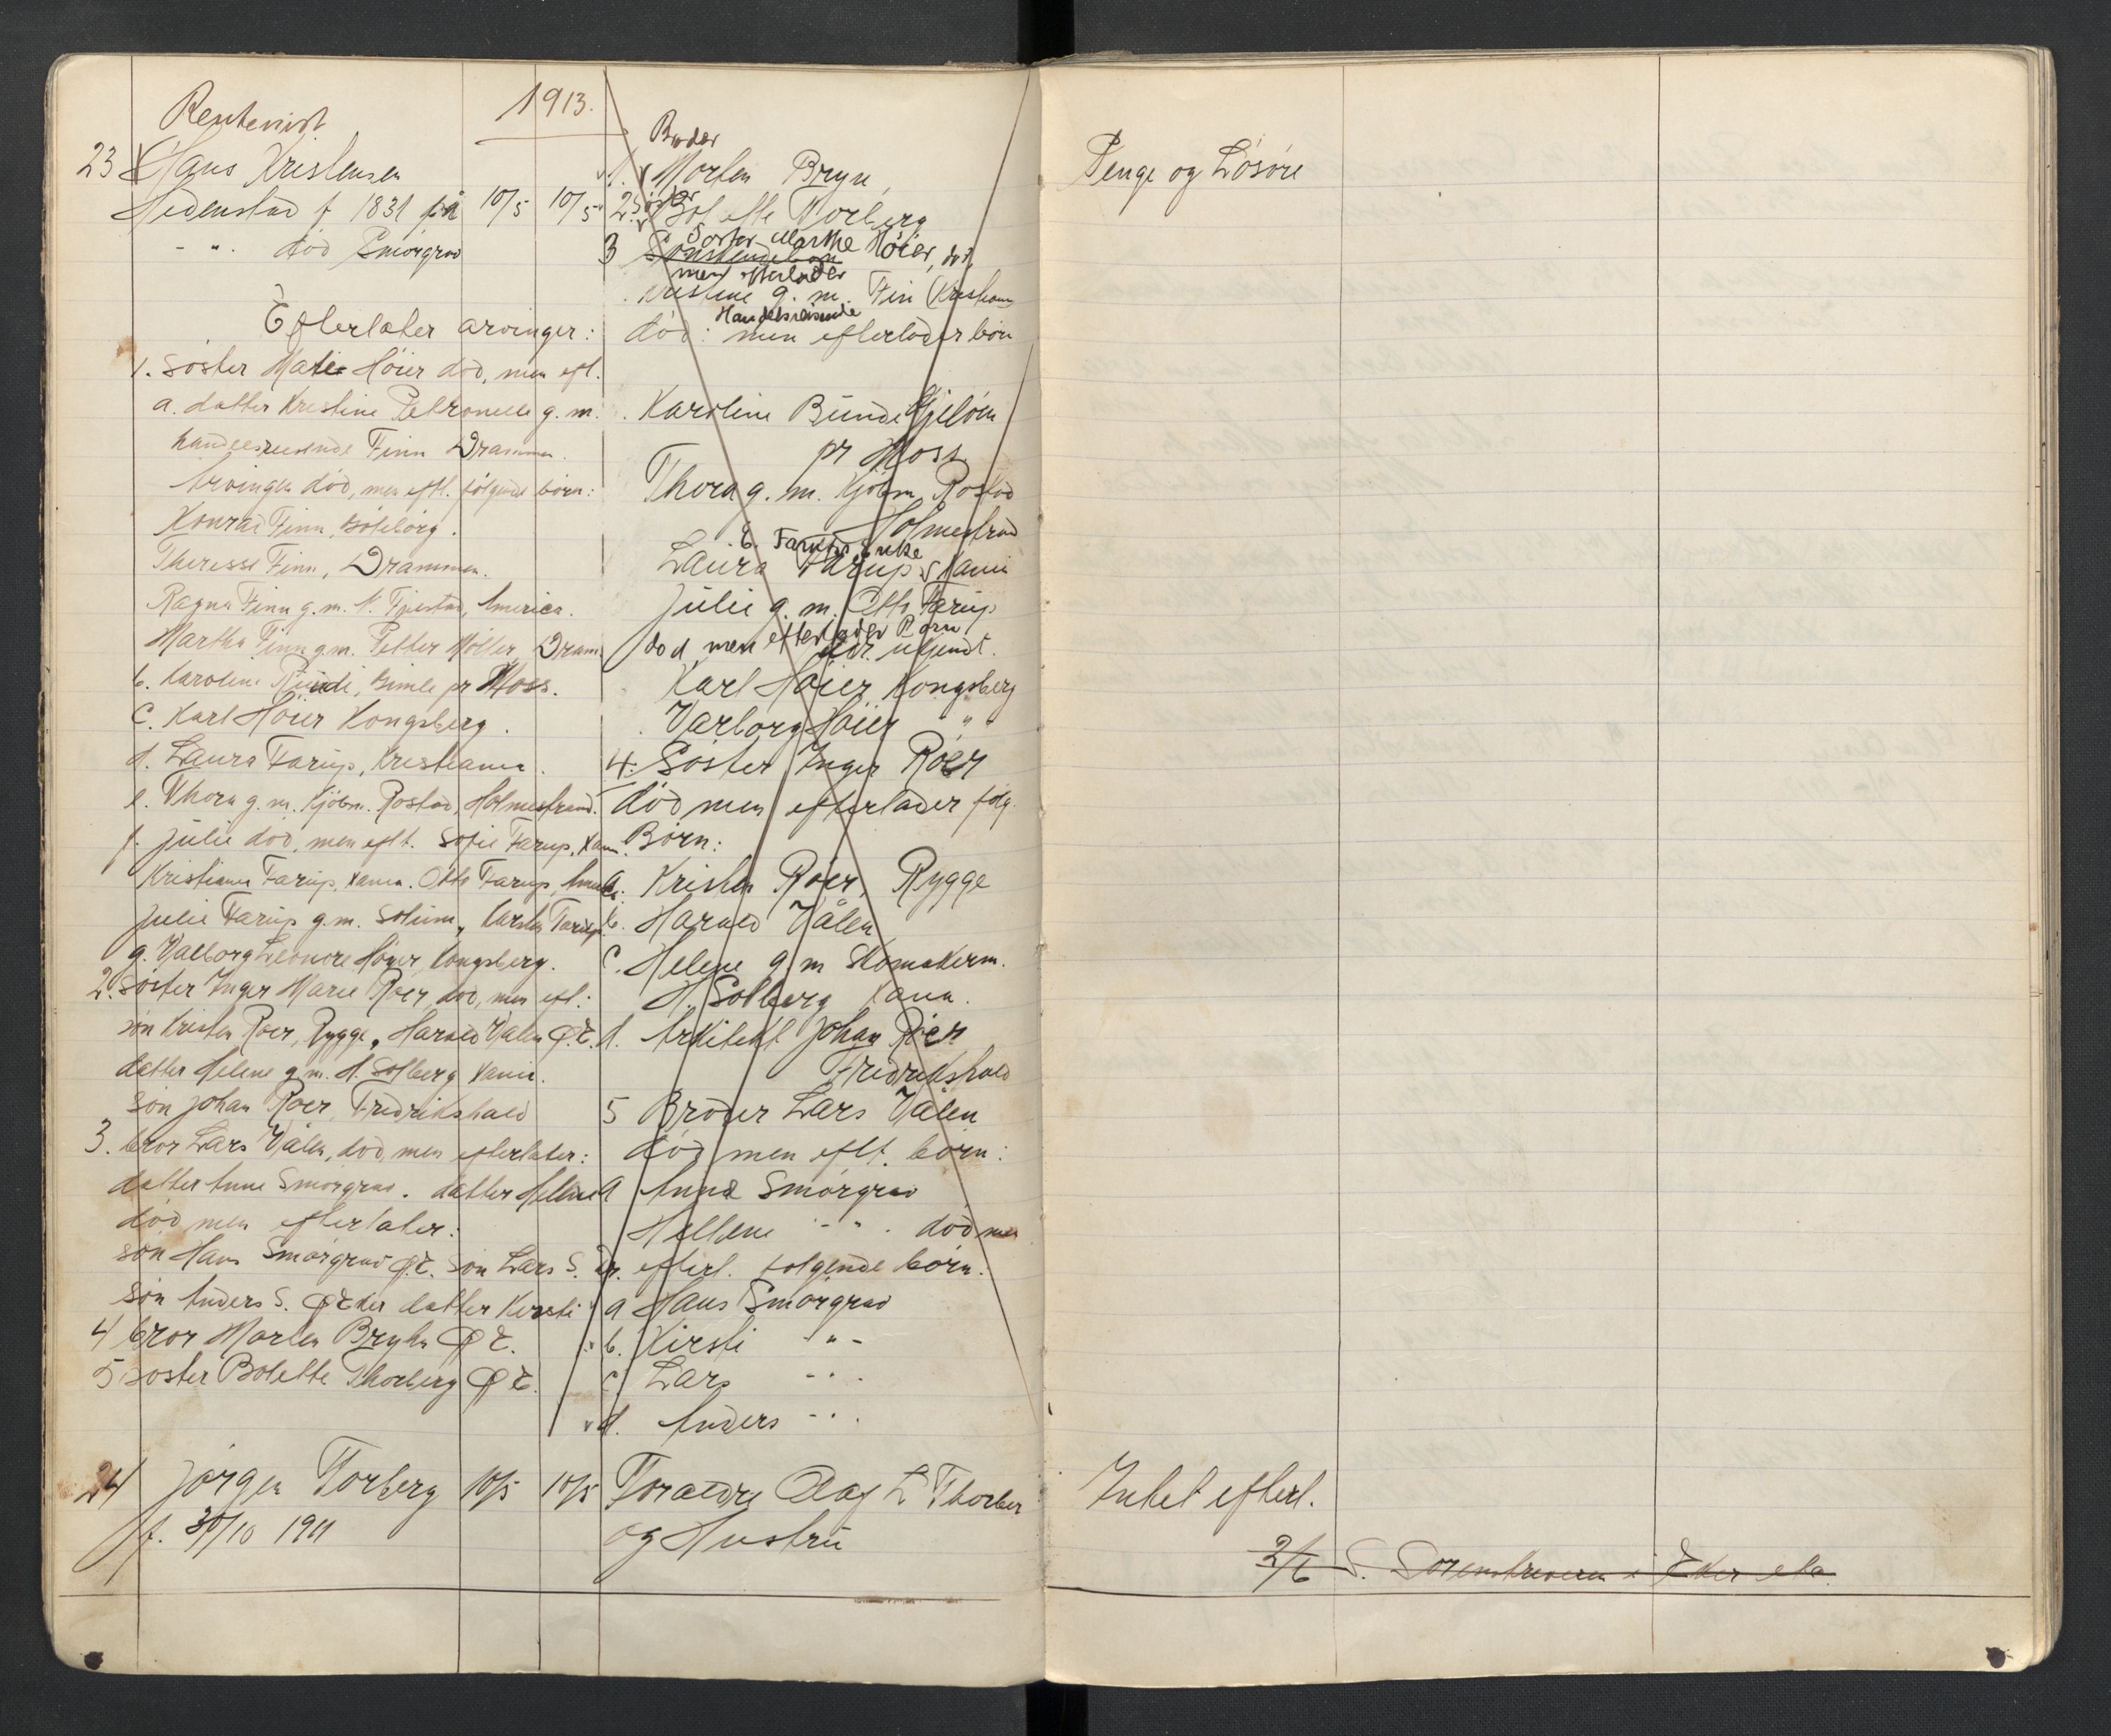 1913.
Rentenist
23 Hans Kristensen
Hedenstad f 1831 på 10/5 10/5
- " - død Smørgrav
Efterlater arvinger:
1. Søster Marie Höier død, men eft.
a. datter Kristine Petronelle g. m.
handelsreisende Finn Drammen.
Arvingen död, men eftl. følgende børn:
Konrad Finn, Göteborg.
Theresse Finn, Drammen.
Ragna Finn g. m. N. America.
Martha Finn g.m. Petter Möller, Dram.
b. Karoline Bunde, pr Moss.
C. Karl Höier Kongsberg.
d. Laura Farup, Kristiania.
e. Thora g. m. Kjøbm. Rostad, Holmestrand.
f. Julie död, men eflt. Sofie Farup, Kania.
Kristiania Farup, Kania. Otto Farup,
Julie Farup g.m. Solum, Karsten Farup
g. Valborg Leonore Höyer, Kongsberg.
2. Søster Inger Marie Roer, död, men efl.:
søn Kristen Roer, Rygge, Harald Valen Ø.E.
datter Helene g. m. A. Solberg Kania.
Søn Johan Roer, Fredrikshald
3. bror Lars Vålen, død, men efterlater:
datter Anne Smørgrav. datter Helene
död men efterlater:
søn Hans Smørgrav Ø.E. Søn Lars S. Dr.
Søn Anders S. Ø Eker datter Kersti "
4 bror Morten Bryhn Ø E.
5 søster Bolette Thorberg Ø E.
Broder
1. Morten Bryn,
2. Søster Bolette Torberg
3 Søster Marthe Höier, død,
men efterlader
Kristine g. m. Fin (Kristiania
Handelsreisende
död: men efterlader børn
Karoline Bunde Gjelöen
pr Moss
Thora g. m. Kjøbm. Rostad
Holmestrand
E. Farups Enke
Laura Farup Kania
Julie g. m. Otto Farup
død men efterlader Barn
adr. ukjendt.
Karl Höier Kongsberg
Varborg Höier " "
4. Søster Inger Röer
död men efterlader følg.
Børn:
a. Kristen Röer, Rygge
b. Harald Vålen
C. Helene g. m Skomakerm.
A. Solberg Kania.
d. Arkitekt Johan Röer
Fredrikshald
5 Broder Lars Vålen
död men eflt. børn:
a Anna Smørgrav
Hellene - " - död men
efterl. følgende børn:
a Hans Smørgrav
b. Kirsti - " -
c Lars - " -
d. Anders - " -
Penge og Løsøre
24 Jørgen Torberg 10/5 10/5 Forældre Olaf L Thorber
f. 30/10 1911 og Hustru
Intet efterl.
2/6 S. Sorenskriveren i Eker